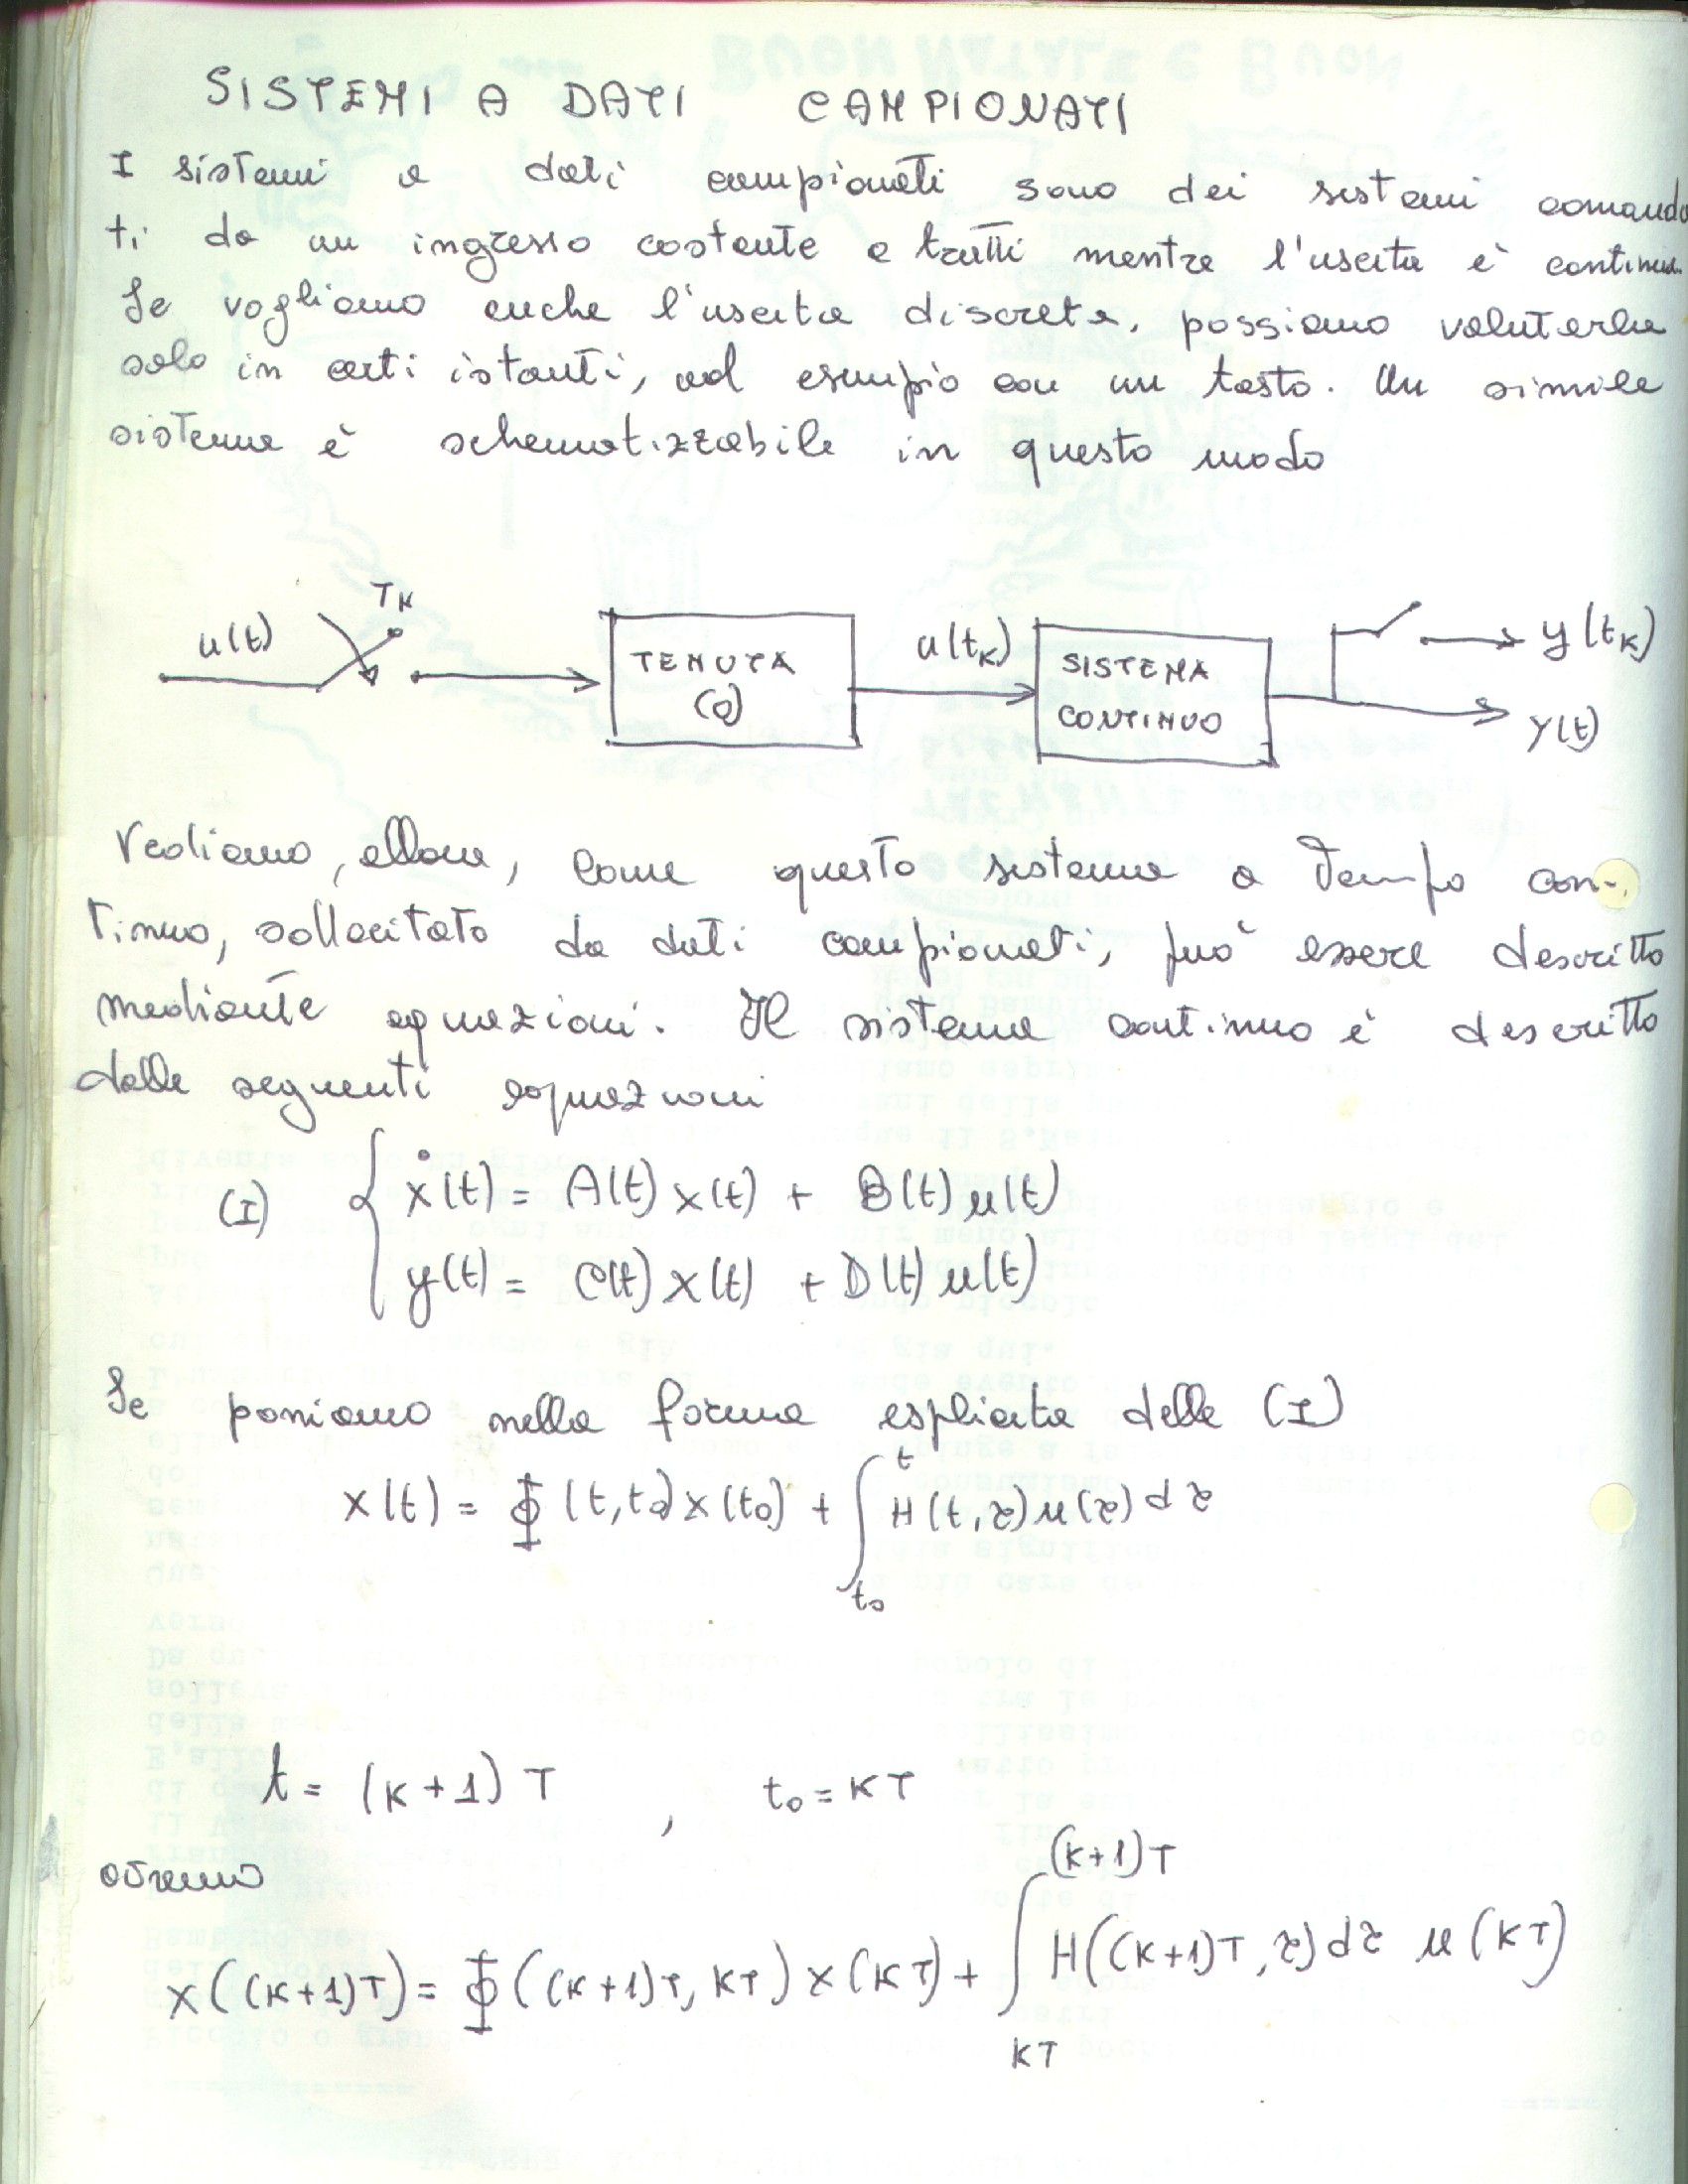 SISTEMI A DATI CAMPIONATI
I sistemi a dati campionati sono dei sistemi comanda
ti da un ingresso costante a tratti mentre l'uscita è continua.
Se vogliamo anche l'uscita discreta, possiamo valutarla
solo in certi istanti, ad esempio con un tasto. Un simile
sistema è schematizzabile in questo modo
u(t) TK TENUTA (0) u(tK) SISTEMA CONTINUO y(tK)
y(t)
Vediamo, allora, come questo sistema a tempo con-
tinuo, sollecitato da dati campionati, può essere descritto
mediante equazioni. Il sistema continuo è descritto
dalle seguenti equazioni
(I) { ẋ(t) = A(t) x(t) + B(t) u(t)
y(t) = C(t) x(t) + D(t) u(t)
Se poniamo nella forma esplicita delle (I)
x(t) = Φ(t,t₀) x(t₀) + ∫_{t₀}^{t} H(t,τ) u(τ) dτ
t = (K+1) T , t₀ = KT
avremo
x((K+1)T) = Φ((K+1)T, KT) x(KT) + ∫_{KT}^{(K+1)T} H((K+1)T, τ) dτ u(KT)